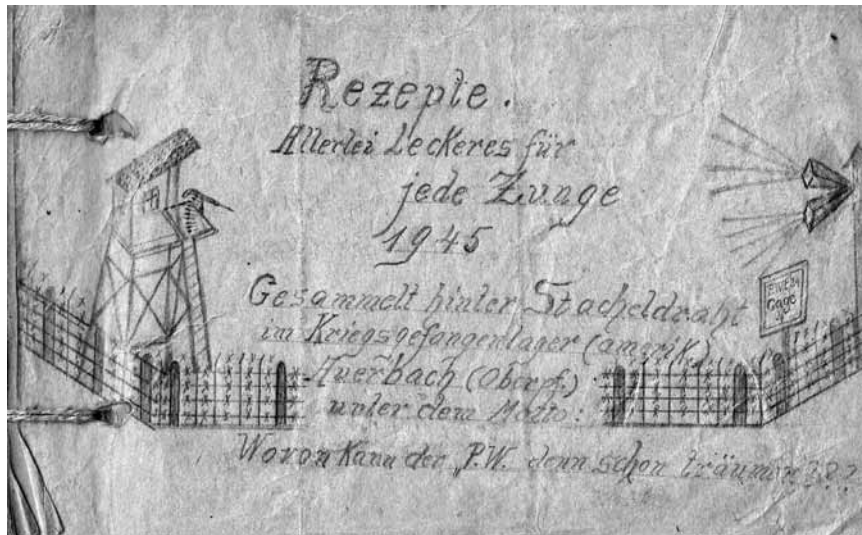 Rezepte.
Allerlei Leckeres für
jede Zunge
1945
Gesammelt hinter Stacheldraht
im Kriegsgefangenlager (amerik.)
Auerbach (Oberpf.)
unter dem Motto:
Wovon kann der P.W. denn schon träumen???
Cage